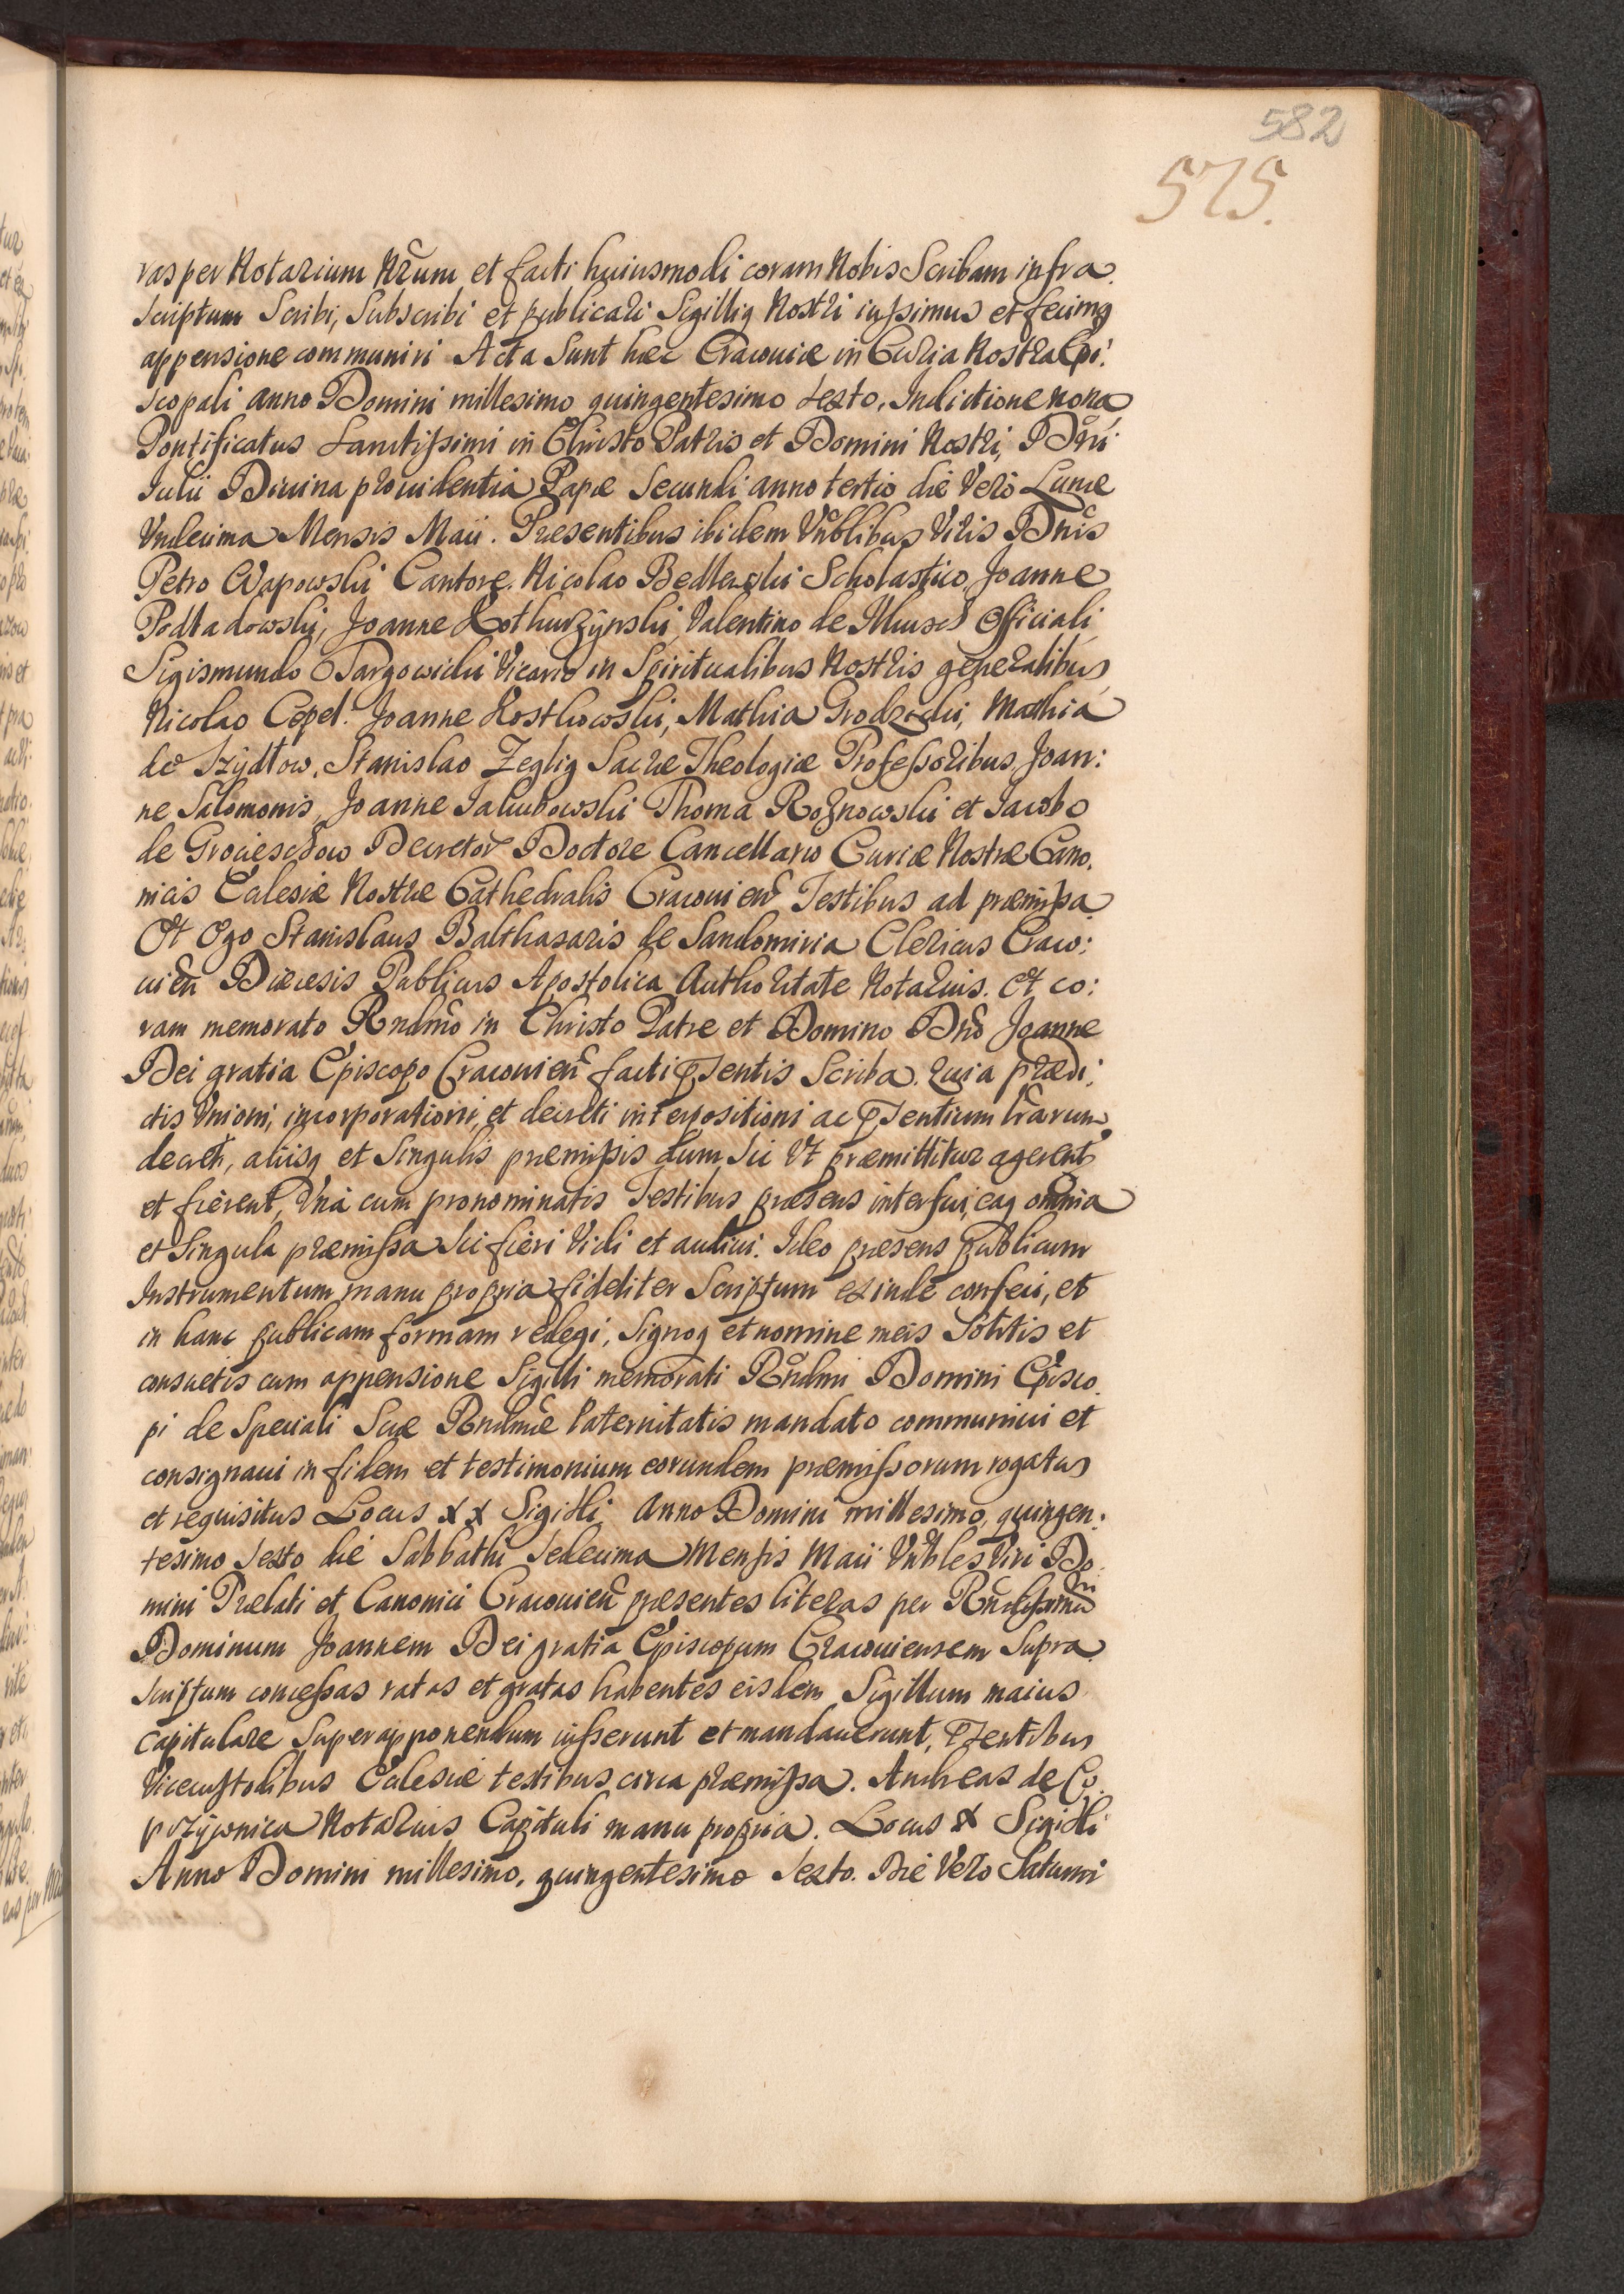 582
575.
ras per Notarium Nrũm et facti huiusmodi coram Nobis Scribam infra
scriptum Scribi, Subscribi et publicari Sigilliq Nostri iussimus et fecimq
appensione communiri Acta Sunt hæc Cracouiæ in Curia Nostra Epi:
scopali anno Domini millesimo quingentesimo sexto, Indictione nona
Pontificatus Sanctissimi in Christo Patris et Domini Nostri, Dñi
Iulii Diuina prouidentia Papæ Secundi anno tertio die Verò Lunæ
Vndecima Mensis Maii. Præsentibus ibidem Vñblibus Viris Dñis
Petro Wapowski Cantore. Nicolao Bedlenski Scholastico, Joanne
Podladowski, Joanne Kothurzÿnski, Valentino de Ilkusch Officiali
Sigismundo Targowicki Vicario in Spiritualibus Nostris generalibus
Nicolao Cepel. Joanne Kosthowski, Mathia Grodzicki, Mathia
de Szÿdłow, Stanislao Zeglig Sacræ Theologiæ Professoribus, Joan:
ne Salomonis, Joanne Jakubowski Thoma Rożnowski et Jacobo
de Grocieschow Decretor Doctore Cancellario Curiæ Nostræ Cano.
nicis Ecclesiæ Nostræ Cathedralis Cracouieñ Testibus ad præmissa
Et Ego Stanislaus Balthasaris de Sandomiria Clericus Craco:
uieñ Diæcesis Publicus Apostolica Authoritate Notarius. Et co:
ram memorato Rndmõ in Christo Patre et Domino Dnõ Joanne
Dei gratia Episcopo Cracouieñ facti psentis Scriba. Quia prædi:
ctis Vnioni, incorporationi, et decreti interpositioni ac psentium lrãrum
decreti, aliisq et Singulis præmissis dum Sic Vt præmittitur agerent
et fierent, Vnà cum pronominatis Testibus præsens interfui, eaq omnia
et Singula præmissa Sic fieri Vidi et audiui. Ideo præsens publicum
Instrumentum manu propria fideliter Scriptum exinde confeci, et
in hanc publicam formam redegi, Signoq et nomine meis Solitis et
consuetis cum appensione Sigilli memorati Rñdmi Domini Episco.
pi de Speciali Suæ Rndmæ Paternitatis mandato communiui et
consignaui in fidem et testimonium eorundem præmissorum rogatus
et requisitus Locus x x Sigilli Anno Domini millesimo, quingen:
tesimo sexto die Sabbathi sedecima Mensis Maii Vñbles Viri Do
mini Prælati et Canonici Cracouieñ præsentes literas per Rndissimũ
Dominum Joannem Dei gratia Episcopum Cracouiensem Supra
scriptum concessas ratas et gratas habentes eisdem Sigillum maius
capitulare Superapponendum iusserunt et mandauerunt, psentibus
Vicecustodibus Ecclesiæ testibus circa præmissa. Andreas de Co
przÿwnica Notarius Capituli manu propria. Locus x Sigilli
Anno Domini millesimo, quingentesimo sexto. Die Vero Saturni